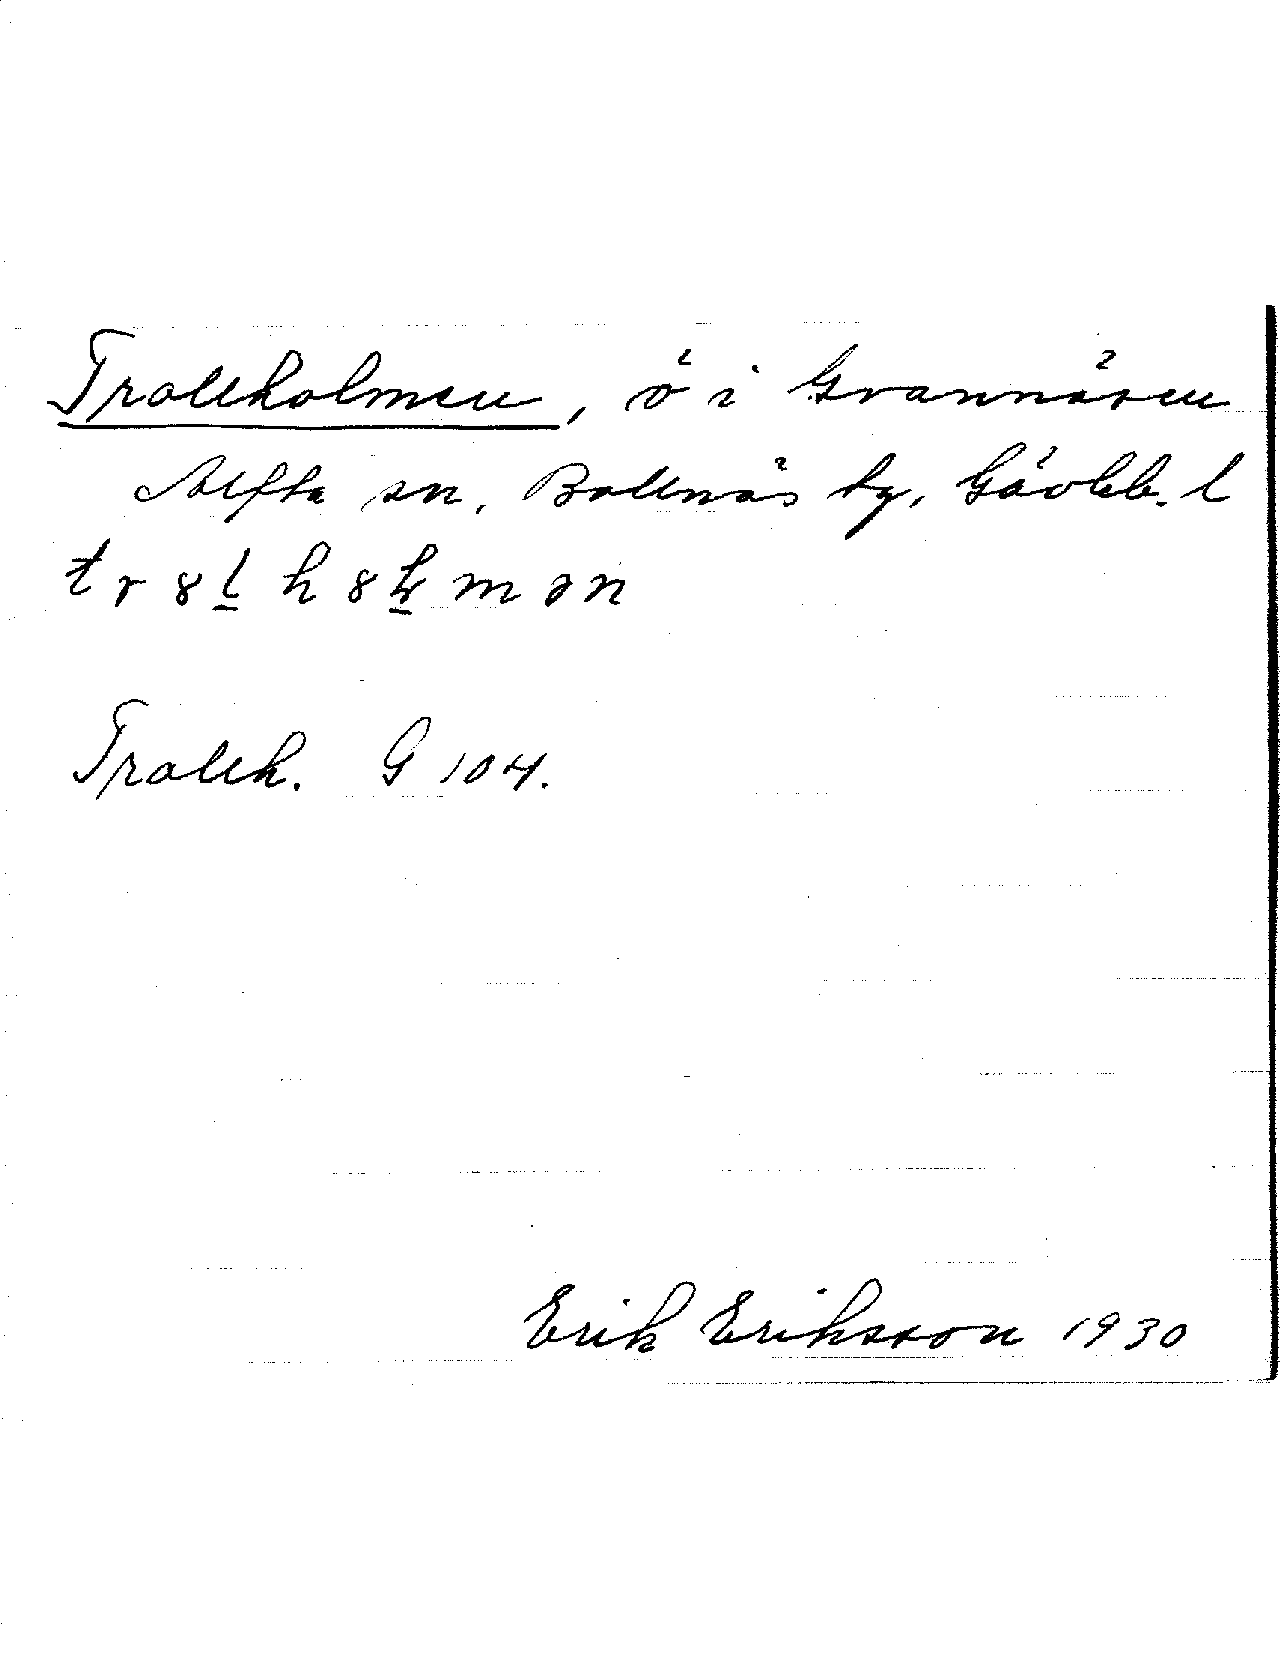 Trollholmen, ö i Grannäsen
Alfta sn, Bollnäs tg, Gävleb. l
tr8l h8ɫmən
Trollh. G 104.
Erik Eriksson 1930